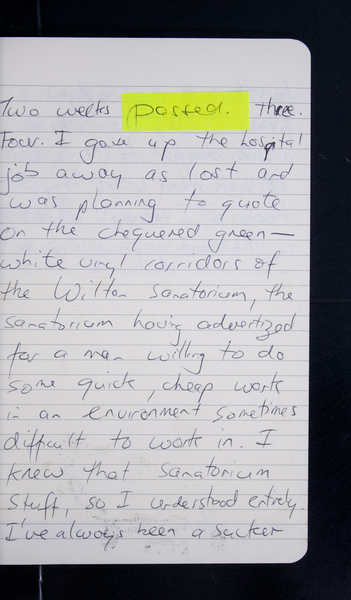 Two weeks passed. Three.
Four. I gave up the hospital
job away as lost and
was planning to quote
on the chequered green—
white vinyl corridors of
the Wilton Sanatorium, the
sanatorium having advertized
for a man willing to do
some quick, cheap work
in an environment sometimes
difficult to work in. I
knew that sanatorium
stuff, so I understood entirely.
I've always been a sucker